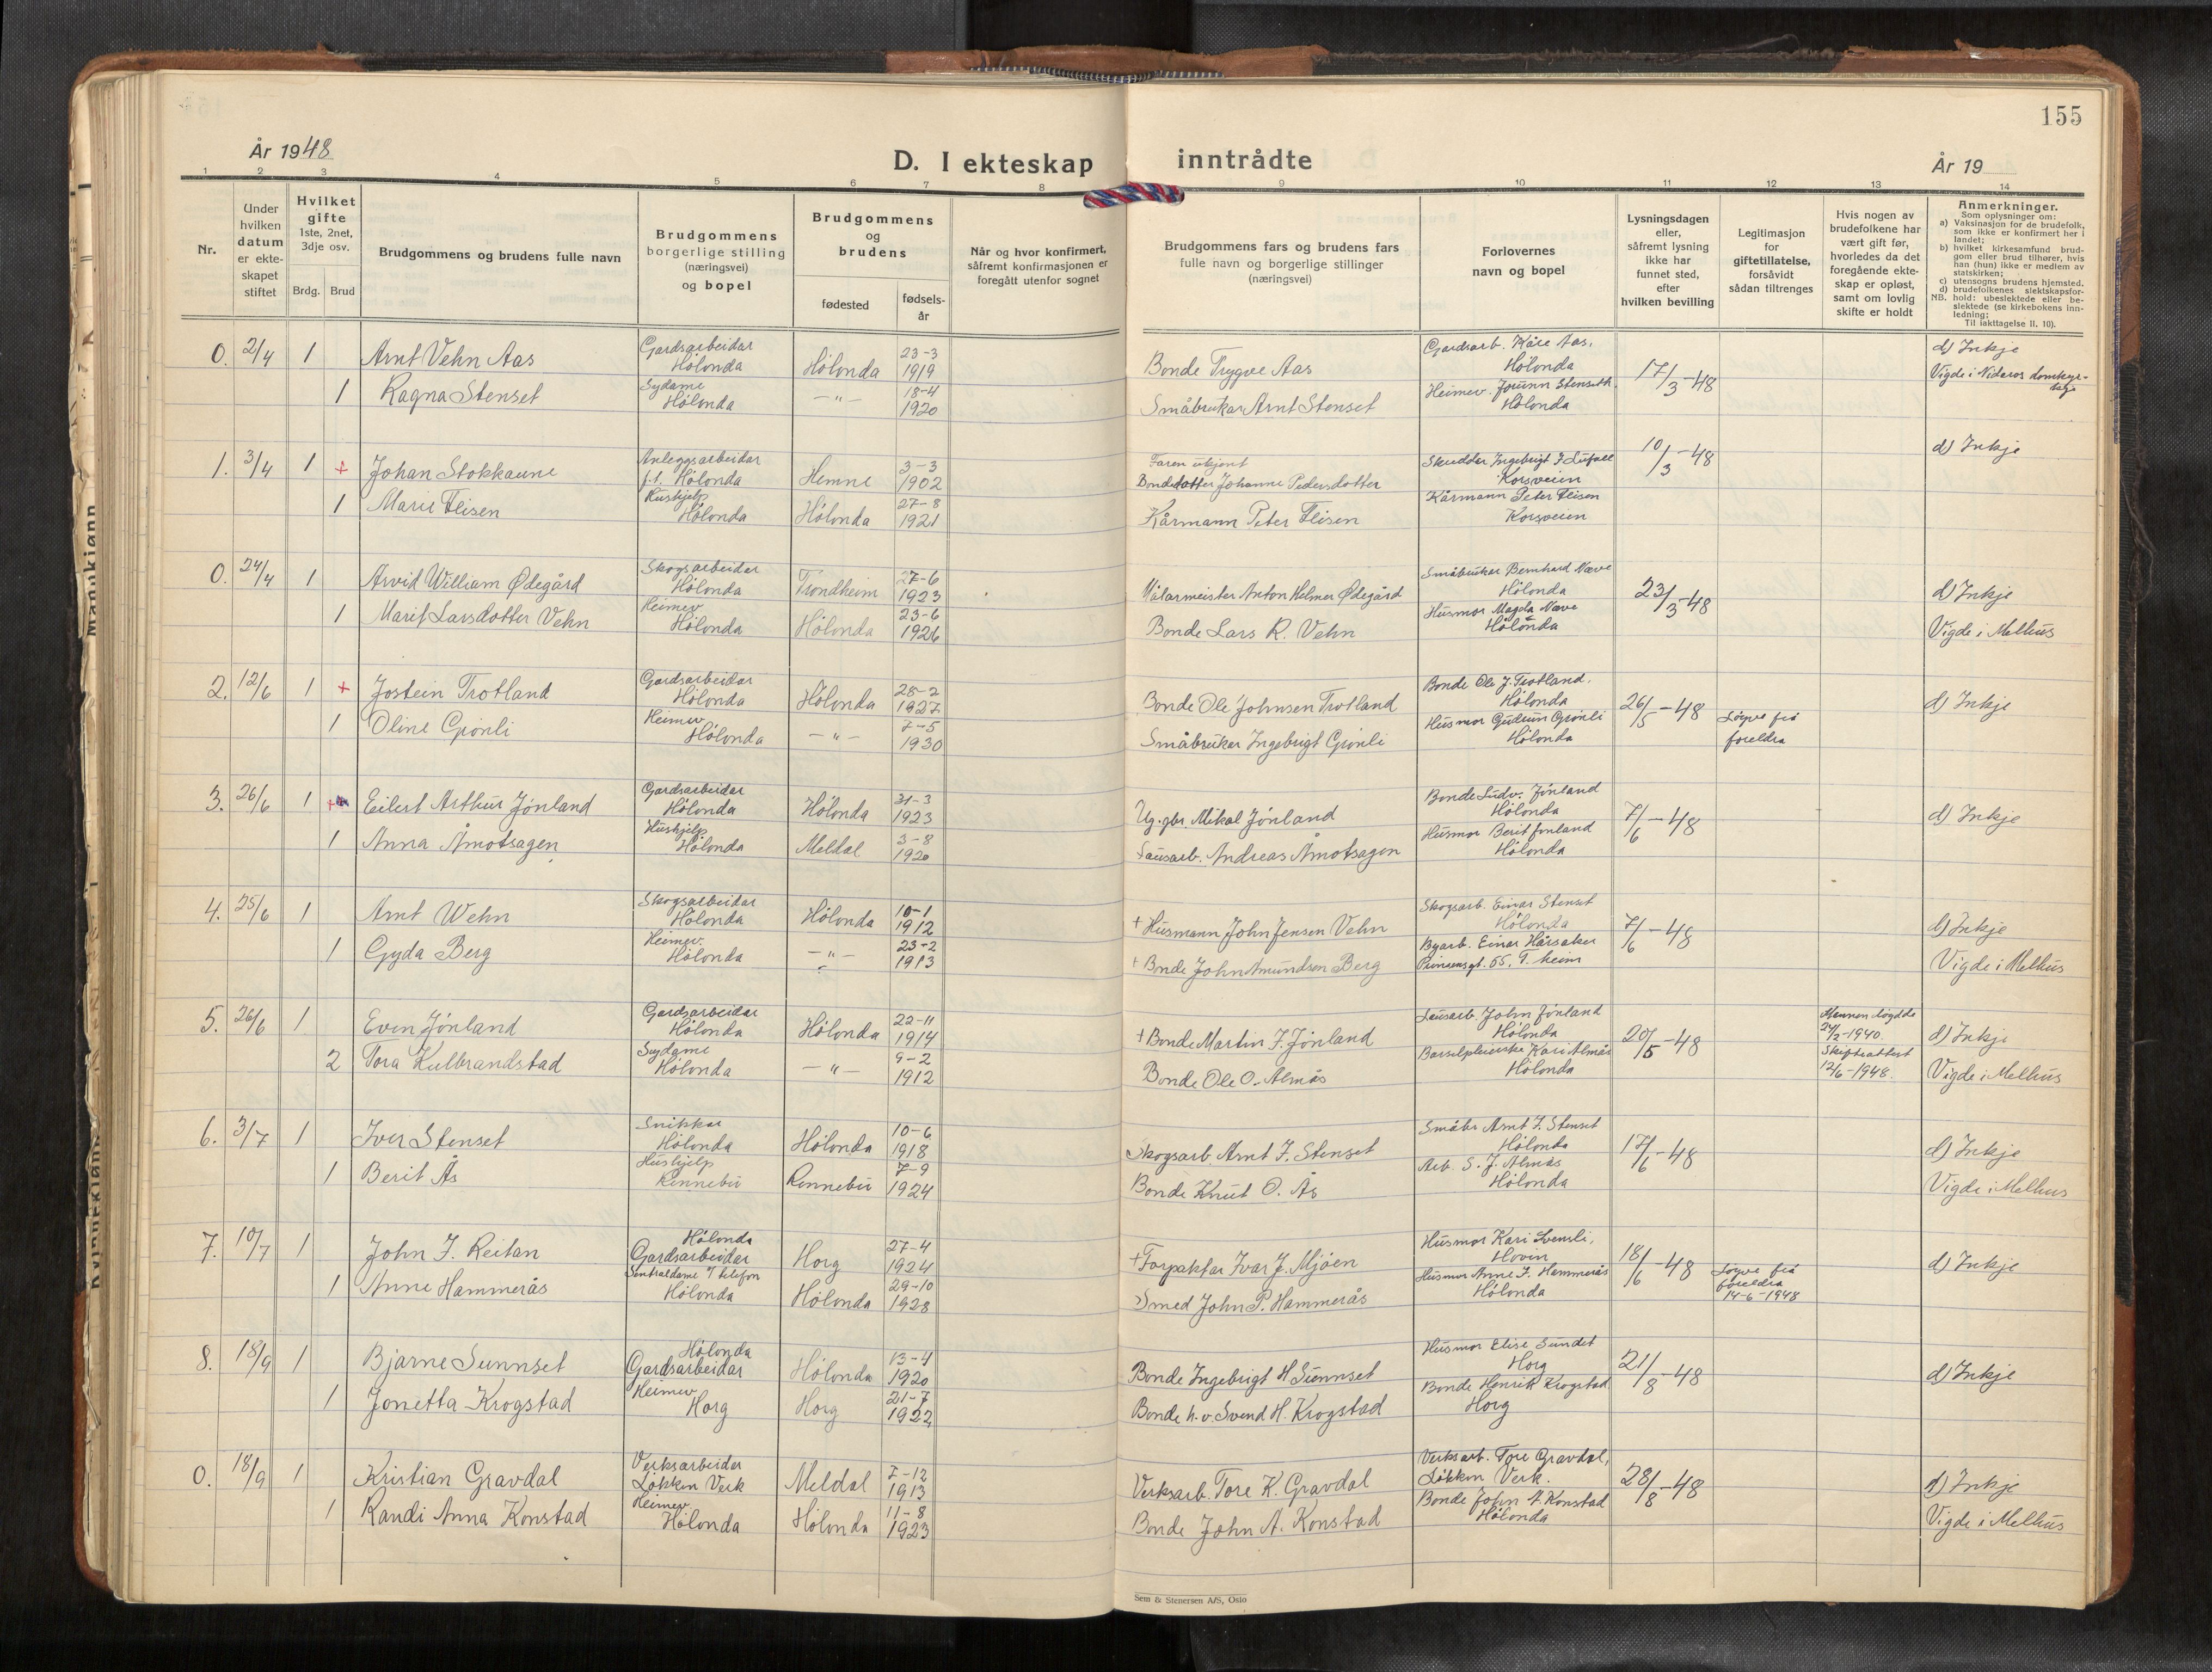 155
År 1948
D. I ekteskap inntrådte
År 19
1 2 3 4 5 6 7 8 9 10 11 12 13 14
Nr.
Under hvilken datum er ekteskapet stiftet
Hvilket gifte 1ste, 2net, 3dje osv.
Brdg. Brud
Brudgommens og brudens fulle navn
Brudgommens borgerlige stilling (næringsvei) og bopel
Brudgommens og brudens
fødested
fødsels-år
Når og hvor konfirmert, såfremt konfirmasjonen er foregått utenfor sognet
Brudgommens fars og brudens fars fulle navn og borgerlige stillinger (næringsvei)
Forlovernes navn og bopel
Lysningsdagen eller, såfremt lysning ikke har funnet sted, efter hvilken bevilling
Legitimasjon for giftetillatelse, forsåvidt sådan tiltrenges
Hvis nogen av brudefolkene har vært gift før, hvorledes da det foregående ekteskap er opløst, samt om lovlig skifte er holdt
Anmerkninger.
Som oplysninger om:
a) Vaksinasjon for de brudefolk, som ikke er konfirmert her i landet;
b) hvilket kirkesamfund brudgom eller brud tilhører, hvis han (hun) ikke er medlem av statskirken;
c) utensogns brudens hjemsled.
d) brudefolkenes slektskapsforhold: ubeslektede eller beslektede (se kirkebokens innledning;
NB.
Til iakttagelse II. 10).
0. 2/4 1 Arnt Vehn Aas Gardsarbeidar Hølonda Hølonda 23-3 1919 Bonde Trygve Aas Gardsarb. Kåre Aas, Hølonda 17/3-48 d) Inkje
1 Ragna Stenset Sydame Hølonda -"- 18-4 1920 Småbrukar Arnt Stenset Heimev. Jorunn Stenseth Hølonda Vigde i Nidaros domkyrkje
1. 3/4 1 + Johan Stokkaune Anleggsarbeidar f.t. Hølonda Hemne 3-3 1902 Faren ukjent Bondedotter Johanne Pedersdotter Skreddar Ingebrigt J. Korsveien 10/3-48 d) Inkje
1 Marie Flisen Hushjelp Hølonda Hølonda 27-8 1921 Kårmann Peter Flisen Kårmann Peter Flisen Korsveien
0. 24/4 1 Arvid William Ødegård Skogsarbeidar Hølonda Trondheim 27-6 1923 Målarmeister Anton Helmer Ødegård Småbrukar Bernhard Næve Hølonda 23/3-48 d) Inkje
1 Marit Larsdotter Vehn Heimev Hølonda Hølonda 23-6 1926 Bonde Lars R. Vehn Husmor Magda Næve Hølonda Vigde i Melhus
2. 12/6 1 + Jostein Trotland Gardsarbeidar Hølonda Hølonda 28-2 1927 Bonde Ole Johnsen Trotland Bonde Ole J. Trotland, Hølonda 26/5-48 Løyve frå foreldra d) Inkje
1 Oline Grønli Heimev Hølonda -"- 7-5 1930 Småbrukar Ingebrigt Grønli Husmor Gudrun Grønli Hølonda
3. 26/6 1 + Eilert Arthur Jønland Gardsarbeidar Hølonda Hølonda 31-3 1923 Ug. gbr. Mikal Jønland Bonde Ludv. Jønland Hølonda 7/6-48 d) Inkje
1 Anna Åmotsagen Hushjelp Hølonda Meldal 3-8 1920 Lausarb. Andreas Åmotsagen Husmor Berit Jønland Hølonda
4. 25/6 1 Arnt Wehn Skogsarbeidar Hølonda Hølonda 10-1 1912 + Husmann John Jensen Vehn Skogsarb. Einar Stenset Hølonda 7/6-48 d) Inkje
1 Gyda Berg Heimev. Hølonda -"- 23-2 1913 + Bonde John Amundsen Berg Byarb. Einar Hårsaker Prinsensgt. 55, Vigde i Melhus
5. 26/6 1 Even Jønland Gardsarbeidar Hølonda Hølonda 22-11 1914 + Bonde Martin J. Jønland Lausarb. John Jønland Hølonda 20/5-48 Mannen døydde 24/2-1940. d) Inkje
2 Tora Kulbrandstad Sydame Hølonda -"- 9-2 1912 Bonde Ole O. Almås Barselpleierske Kari Almås Hølonda Skifteattest 12/6-1948. Vigde i Melhus
6. 3/7 1 Iver Stenset Snikkar Hølonda Hølonda 10-6 1918 Skogsarb. Arnt J. Stenset Småbr Arnt J. Stenset Hølonda 17/6-48 d) Inkje
1 Berit Ås Hushjelp Rennebu Rennebu 7-9 1924 Bonde Knut O. Ås Arb. S. J. Almås Hølonda Vigde i Melhus
7. 10/7 1 John J. Reitan Hølonda Gardsarbeidar Horg 27-4 1924 + Forpaktar Ivar J. Mjøen Husmor Kari Svensli, Hovin 18/6-48 Løyve frå foreldra 14-6-1948 d) Inkje
1 Anne Hammerås Sentraldame v/ telefon Hølonda Hølonda 29-10 1928 Smed John P. Hammerås Husmor Anne J. Hammerås Hølonda
8. 18/9 1 Bjarne Sunnset Hølonda Gardsarbeidar Hølonda 13-4 1920 Bonde Ingebrigt H Sunnset Husmor Elise Sundet Horg 21/8-48 d) Inkje
1 Jonetta Krogstad Heimev Horg Horg 21-7 1922 Bonde h.v. Svend H. Krogstad Bonde Henrik Krogstad Horg
0. 18/9 1 Kristian Gravdal Verksarbeidar Løkken Verk Meldal 7-12 1913 Verksarb. Tore K. Gravdal Verksarb. Tore Gravdal, Løkken Verk. 28/8-48 d) Inkje
1 Randi Anna Konstad Heimev. Hølonda Hølonda 11-8 1923 Bonde John A. Konstad Bonde John A. Konstad Hølonda Vigde i Melhus
Sem & Stenersen A/S, Oslo